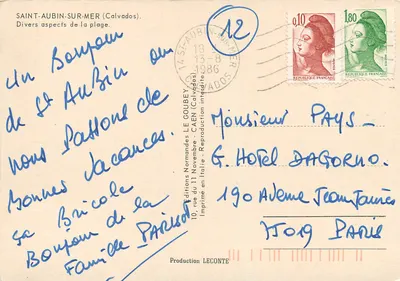 SAINT-AUBIN-SUR-MER (Calvados).
Divers aspects de la plage.
12
14 ST-AUBIN-SUR-MER
18 H
13-8
1986
CALVADOS
0,10
1,80
un Bonjour
de St Aubin ou
nous Passons de
Bonnes Vacances.
ça Bricole
Bonjour de la
Famille PARISOT
Editions Normandes LE GOUBEY
10, rue du 11 Novembre - CAEN (Calvados)
Imprimé en Italie - Reproduction interdite
Monsieur PAYS
G. HOTEL DAGORNO.
190 Avenue Jean Jaurès
75019 PARIS
Production LECONTE